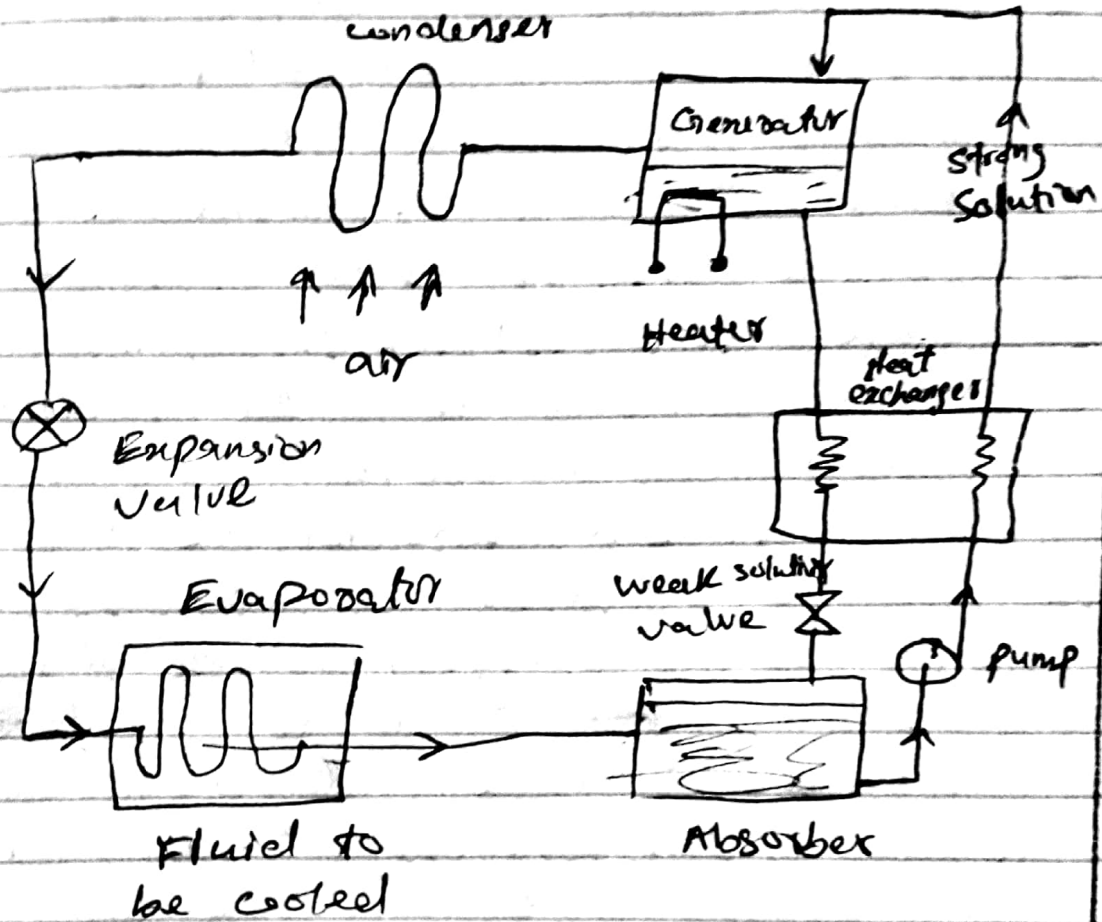 condenser
Generator
Strong
Solution
Heater
air
Heat
exchanger
Expansion
valve
Evaporator
weak solution
valve
pump
Fluid to
be cooled
Absorber